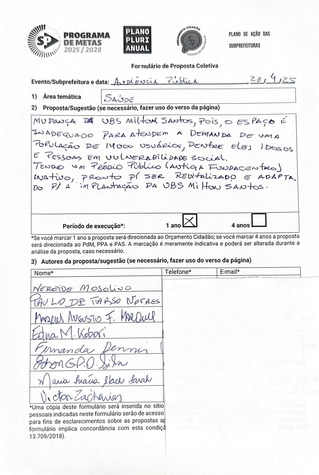 SP
PROGRAMA
DE METAS
2025 / 2028
PLANO
PLURI
ANUAL
PLANO DE AÇÃO DAS
SUBPREFEITURAS
Formulário de Proposta Coletiva
Evento/Subprefeitura e data: AUDIÊNCIA PÚBLICA 28/4/25
1) Área temática SAÚDE
2) Proposta/Sugestão (se necessário, fazer uso do verso da página)
MUDANÇA DA UBS MILTON SANTOS, POIS, O ESPAÇO É
INADEQUADO PARA ATENDEM A DEMANDA DE UMA
POPULAÇÃO DE 14000 USUÁRIOS, DENTRE ELES IDOSOS
E PESSOAS EM VULNERABILIDADE SOCIAL.
TENDO UM PRÉDIO PÚBLICO (ANTIGA FUNDACENTRO)
INATIVO, PRONTO P/ SER REVITALIZADO E ADAPTA-
DO P/ A IMPLANTAÇÃO DA UBS MILTON SANTOS.
Período de execução*: 1 ano X 4 anos
*Se você marcar 1 ano a proposta será direcionada ao Orçamento Cidadão; se você marcar 4 anos a proposta
será direcionada ao PdM, PPA e PAS. A marcação é meramente indicativa e poderá ser alterada durante a
análise da proposta, caso necessário.
3) Autores da proposta/sugestão (se necessário, fazer uso do verso da página)
Nome* Telefone* E-mail*
NEREIDE MOSOLINO
PAULO DE TARSO
MARCUS AUGUSTO F.
Edna M. Kobori
Fernanda
Silva
Maria
Victor
*Uma cópia deste formulário será inserida no sítio
pessoais indicadas neste formulário serão de acesso
para fins de esclarecimentos sobre as propostas ap
formulário implica concordância com esta condiçã
13.709/2018).